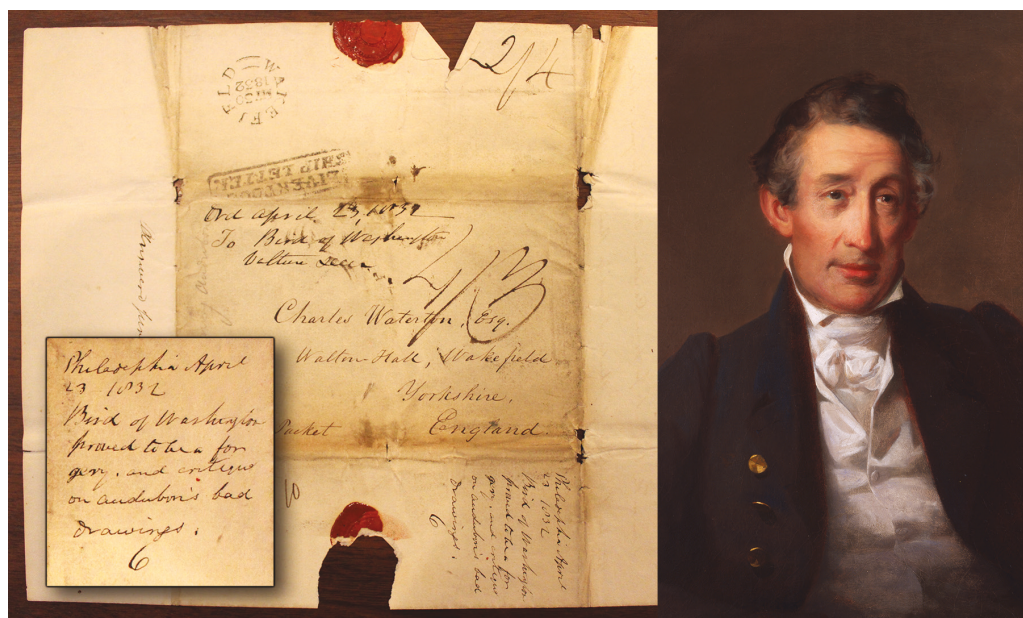 2/4
WAKEFIELD
1832
LIVERPOOL
SHIP LETTER
april 23, 1832
To Bird of Washington
Vulture
Charles Waterton, Esq.
Walton Hall, Wakefield
Yorkshire,
England
Packet
Answered
Philadelphia April
23 1832
Bird of Washington
proved to be a for
gery, and critique
on audubon's bad
drawings.
6
Philadelphia April
23 1832
Bird of Washington
proved to be a for
gery, and critique
on audubon's bad
drawings.
6